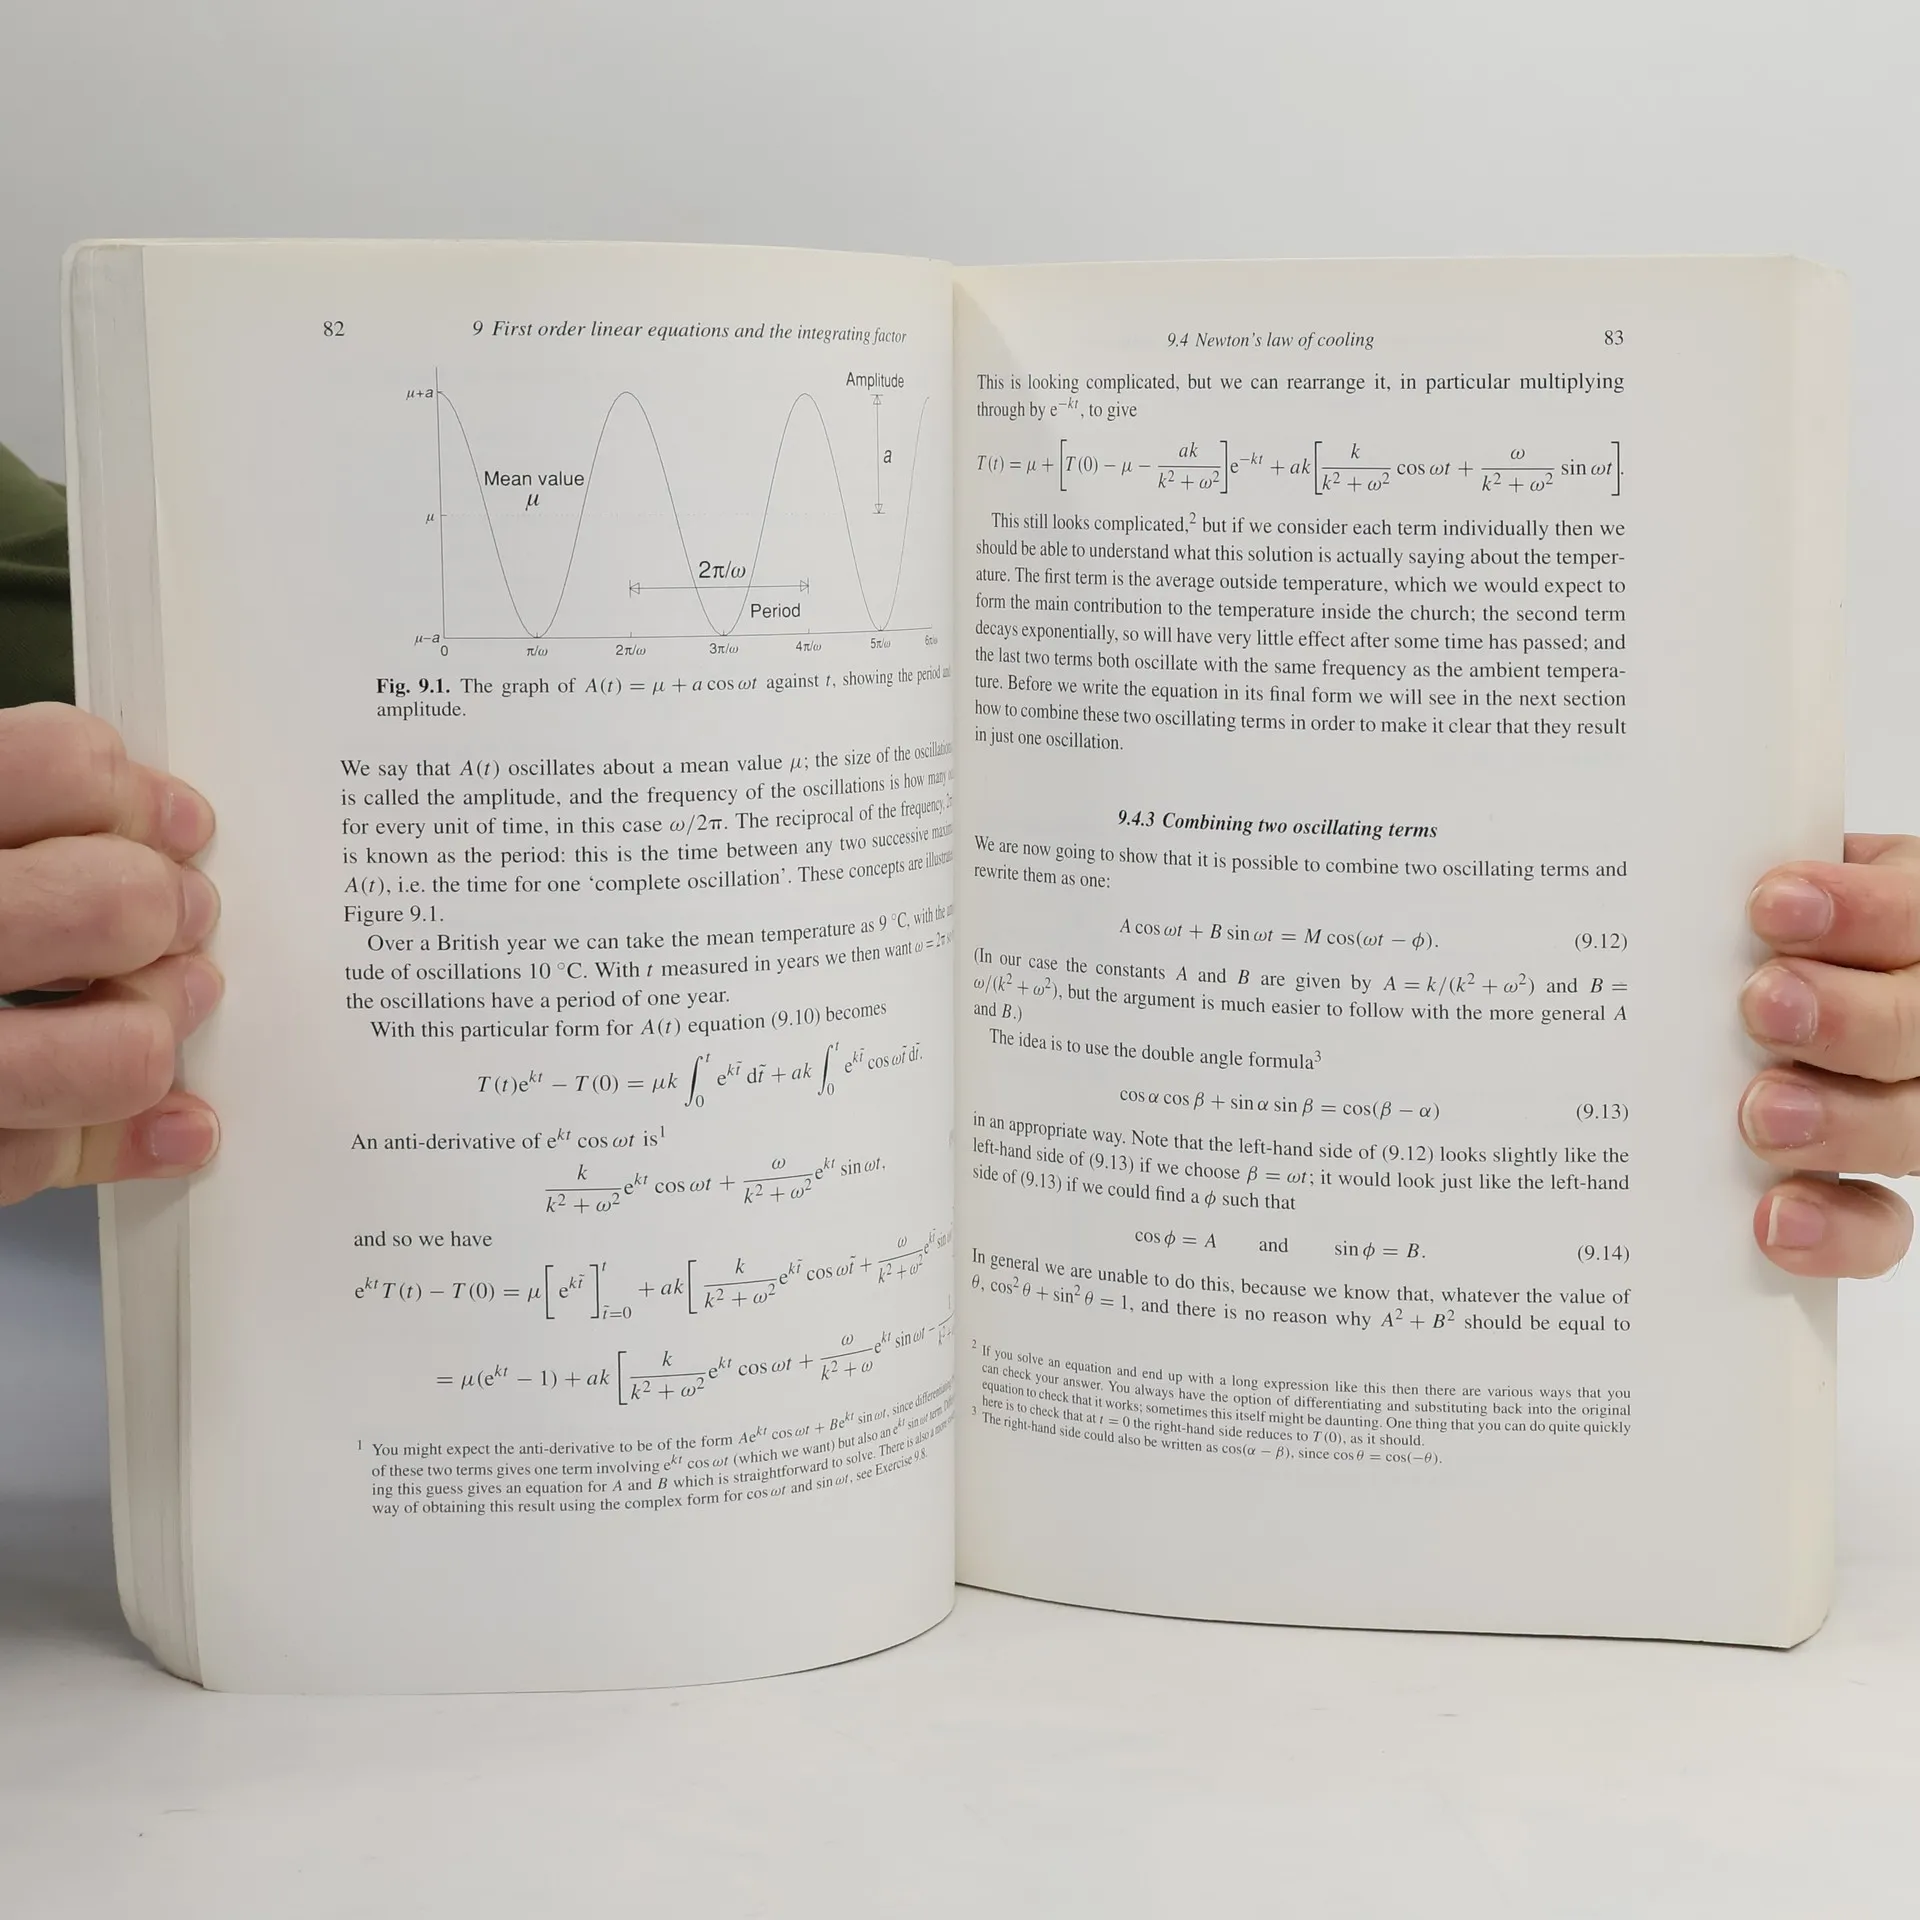 82
9 First order linear equations and the integrating factor
Amplitude
μ+a
a
Mean value
μ
μ
2π/ω
Period
μ−a
0 π/ω 2π/ω 3π/ω 4π/ω 5π/ω 6π/ω
Fig. 9.1. The graph of A(t) = μ + a cos ωt against t, showing the period and
amplitude.
We say that A(t) oscillates about a mean value μ; the size of the
is called the amplitude, and the frequency of the oscillations is how many
for every unit of time, in this case ω/2π. The reciprocal of the frequency,
is known as the period: this is the time between any two successive
A(t), i.e. the time for one ‘complete oscillation’. These concepts are
Figure 9.1.
Over a British year we can take the mean temperature as 9 °C, with the
tude of oscillations 10 °C. With t measured in years we then want ω = 2π so
the oscillations have a period of one year.
With this particular form for A(t) equation (9.10) becomes
T(t)e^{kt} − T(0) = μk ∫_0^t e^{kt̃} dt̃ + ak ∫_0^t e^{kt̃} cos ωt̃ dt̃.
An anti-derivative of e^{kt} cos ωt is¹
k/(k² + ω²) e^{kt} cos ωt + ω/(k² + ω²) e^{kt} sin ωt,
and so we have
e^{kt}T(t) − T(0) = μ[e^{kt̃}]_{t̃=0}^t + ak[k/(k² + ω²) e^{kt̃} cos ωt̃ + ω/(k² + ω²) e^{kt̃} sin
= μ(e^{kt} − 1) + ak[k/(k² + ω²) e^{kt} cos ωt + ω/(k² + ω) e^{kt} sin ωt −
¹ You might expect the anti-derivative to be of the form Ae^{kt} cos ωt + Be^{kt} sin ωt, since differentiating
of these two terms gives one term involving e^{kt} cos ωt (which we want) but also an e^{kt} sin ωt term.
ing this guess gives an equation for A and B which is straightforward to solve. There is also a more
way of obtaining this result using the complex form for cos ωt and sin ωt, see Exercise 9.8.
9.4 Newton's law of cooling
83
This is looking complicated, but we can rearrange it, in particular multiplying
through by e^{−kt}, to give
T(t) = μ + [T(0) − μ − ak/(k² + ω²)]e^{−kt} + ak[k/(k² + ω²) cos ωt + ω/(k² + ω²) sin ωt].
This still looks complicated,² but if we consider each term individually then we
should be able to understand what this solution is actually saying about the temper-
ature. The first term is the average outside temperature, which we would expect to
form the main contribution to the temperature inside the church; the second term
decays exponentially, so will have very little effect after some time has passed; and
the last two terms both oscillate with the same frequency as the ambient tempera-
ture. Before we write the equation in its final form we will see in the next section
how to combine these two oscillating terms in order to make it clear that they result
in just one oscillation.
9.4.3 Combining two oscillating terms
We are now going to show that it is possible to combine two oscillating terms and
rewrite them as one:
A cos ωt + B sin ωt = M cos(ωt − ϕ). (9.12)
(In our case the constants A and B are given by A = k/(k² + ω²) and B =
ω/(k² + ω²), but the argument is much easier to follow with the more general A
and B.)
The idea is to use the double angle formula³
cos α cos β + sin α sin β = cos(β − α) (9.13)
in an appropriate way. Note that the left-hand side of (9.12) looks slightly like the
left-hand side of (9.13) if we choose β = ωt; it would look just like the left-hand
side of (9.13) if we could find a ϕ such that
cos ϕ = A and sin ϕ = B. (9.14)
In general we are unable to do this, because we know that, whatever the value of
θ, cos² θ + sin² θ = 1, and there is no reason why A² + B² should be equal to
² If you solve an equation and end up with a long expression like this then there are various ways that you
can check your answer. You always have the option of differentiating and substituting back into the original
equation to check that it works; sometimes this itself might be daunting. One thing that you can do quite quickly
here is to check that at t = 0 the right-hand side reduces to T(0), as it should.
³ The right-hand side could also be written as cos(α − β), since cos θ = cos(−θ).